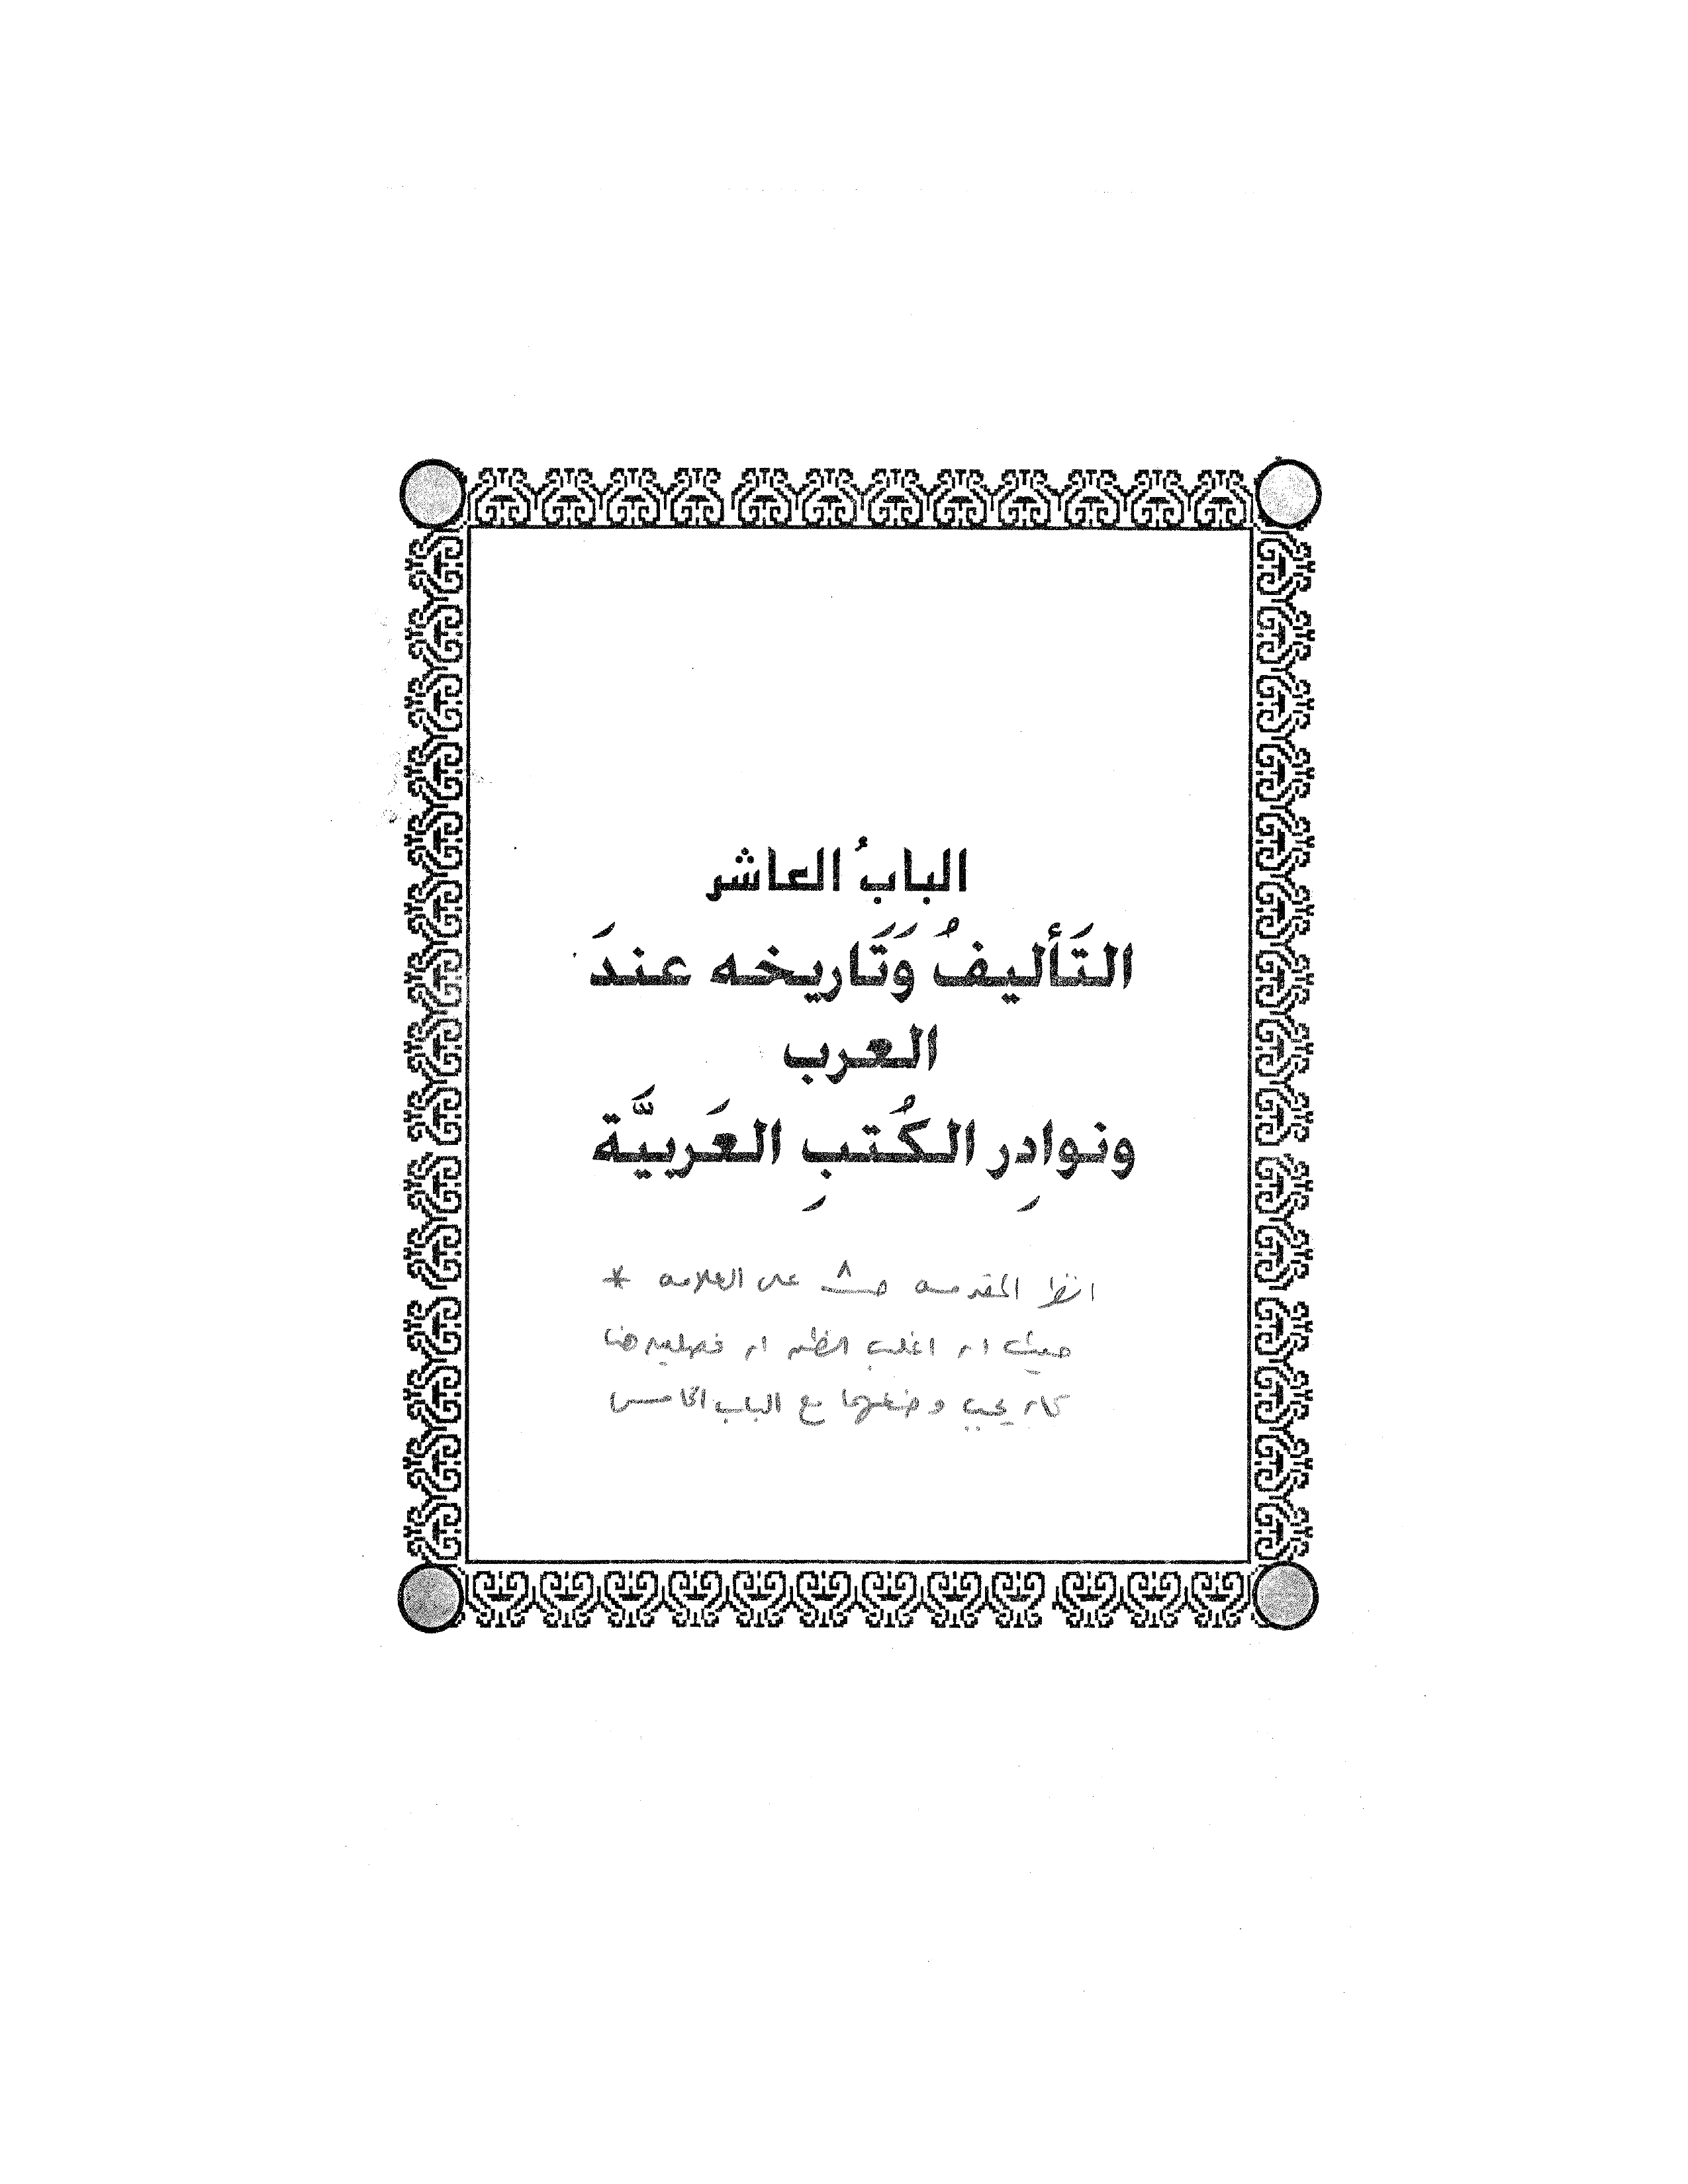 البابُ العاشر
التَأليفُ وَتَاريخه عندَ
العرب
ونوادِر الكُتبِ العَربيَّة
انظر المقدمه صـ ٨ على العلامه *
حيث ان اغلب الظن ان فصلين هنا
كان يجب وضعهما مع الباب الخامس